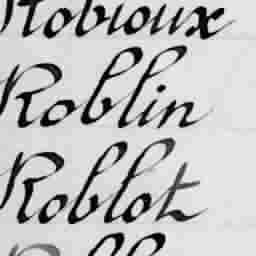 Robioux
Roblin
Roblot